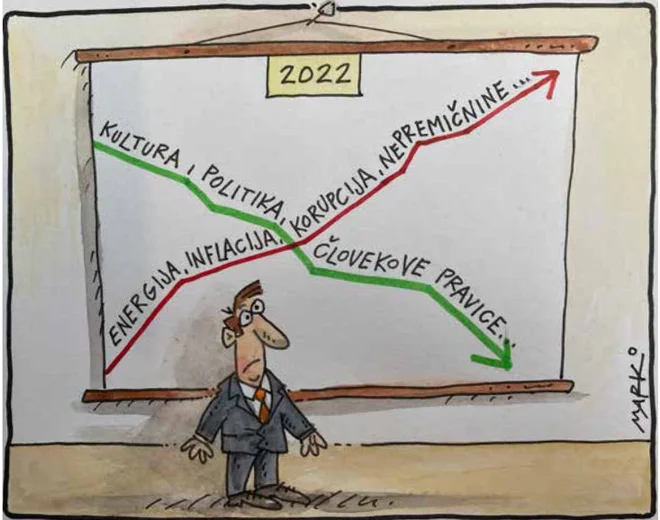 2022
KULTURA, POLITIKA, ČLOVEKOVE PRAVICE...
ENERGIJA, INFLACIJA, KORUPCIJA, NEPREMIČNINE...
MARKO